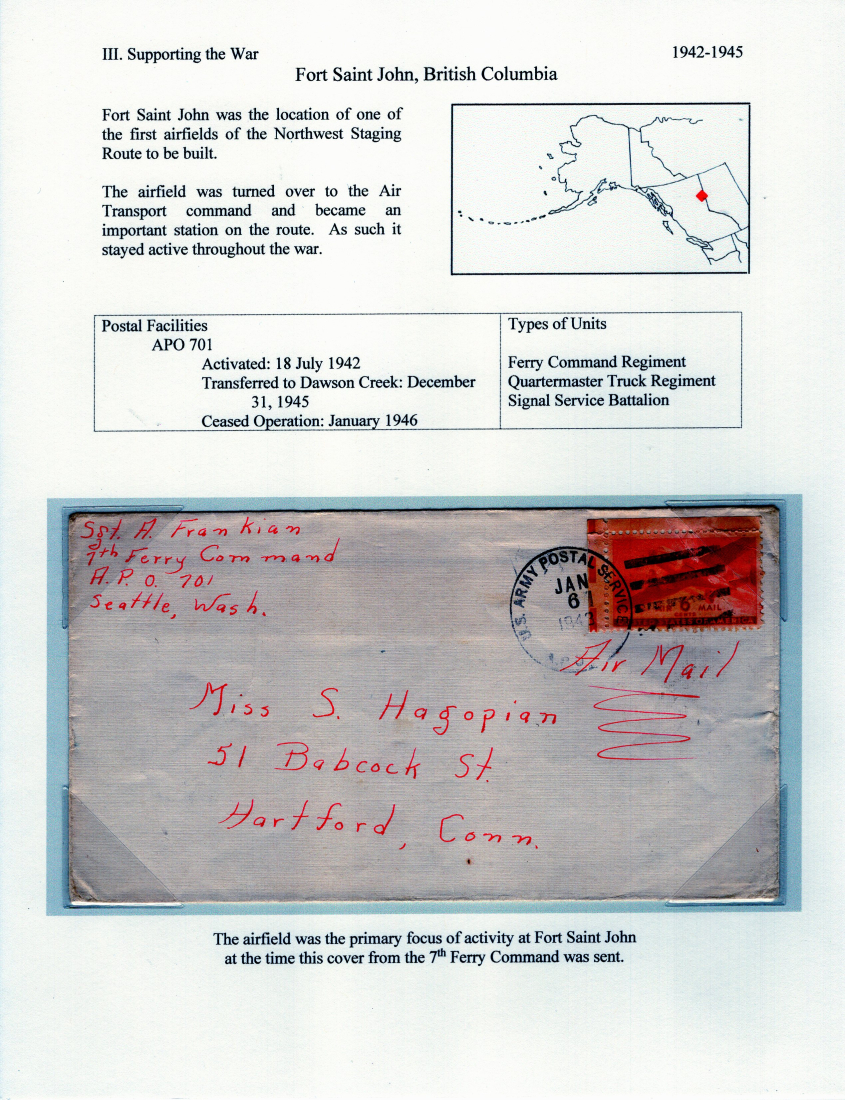 III. Supporting the War 1942-1945
Fort Saint John, British Columbia
Fort Saint John was the location of one of
the first airfields of the Northwest Staging
Route to be built.
The airfield was turned over to the Air
Transport command and became an
important station on the route. As such it
stayed active throughout the war.
Postal Facilities
APO 701
Activated: 18 July 1942
Transferred to Dawson Creek: December
31, 1945
Ceased Operation: January 1946
Types of Units
Ferry Command Regiment
Quartermaster Truck Regiment
Signal Service Battalion
Sgt. A. Frankian
7th Ferry Command
A. P. O. 701
Seattle, Wash.
U.S. ARMY POSTAL SERVICE
JAN
6
1943
6
MAIL
CENTS
Air Mail
Miss S. Hagopian
51 Babcock St.
Hartford, Conn.
The airfield was the primary focus of activity at Fort Saint John
at the time this cover from the 7th Ferry Command was sent.